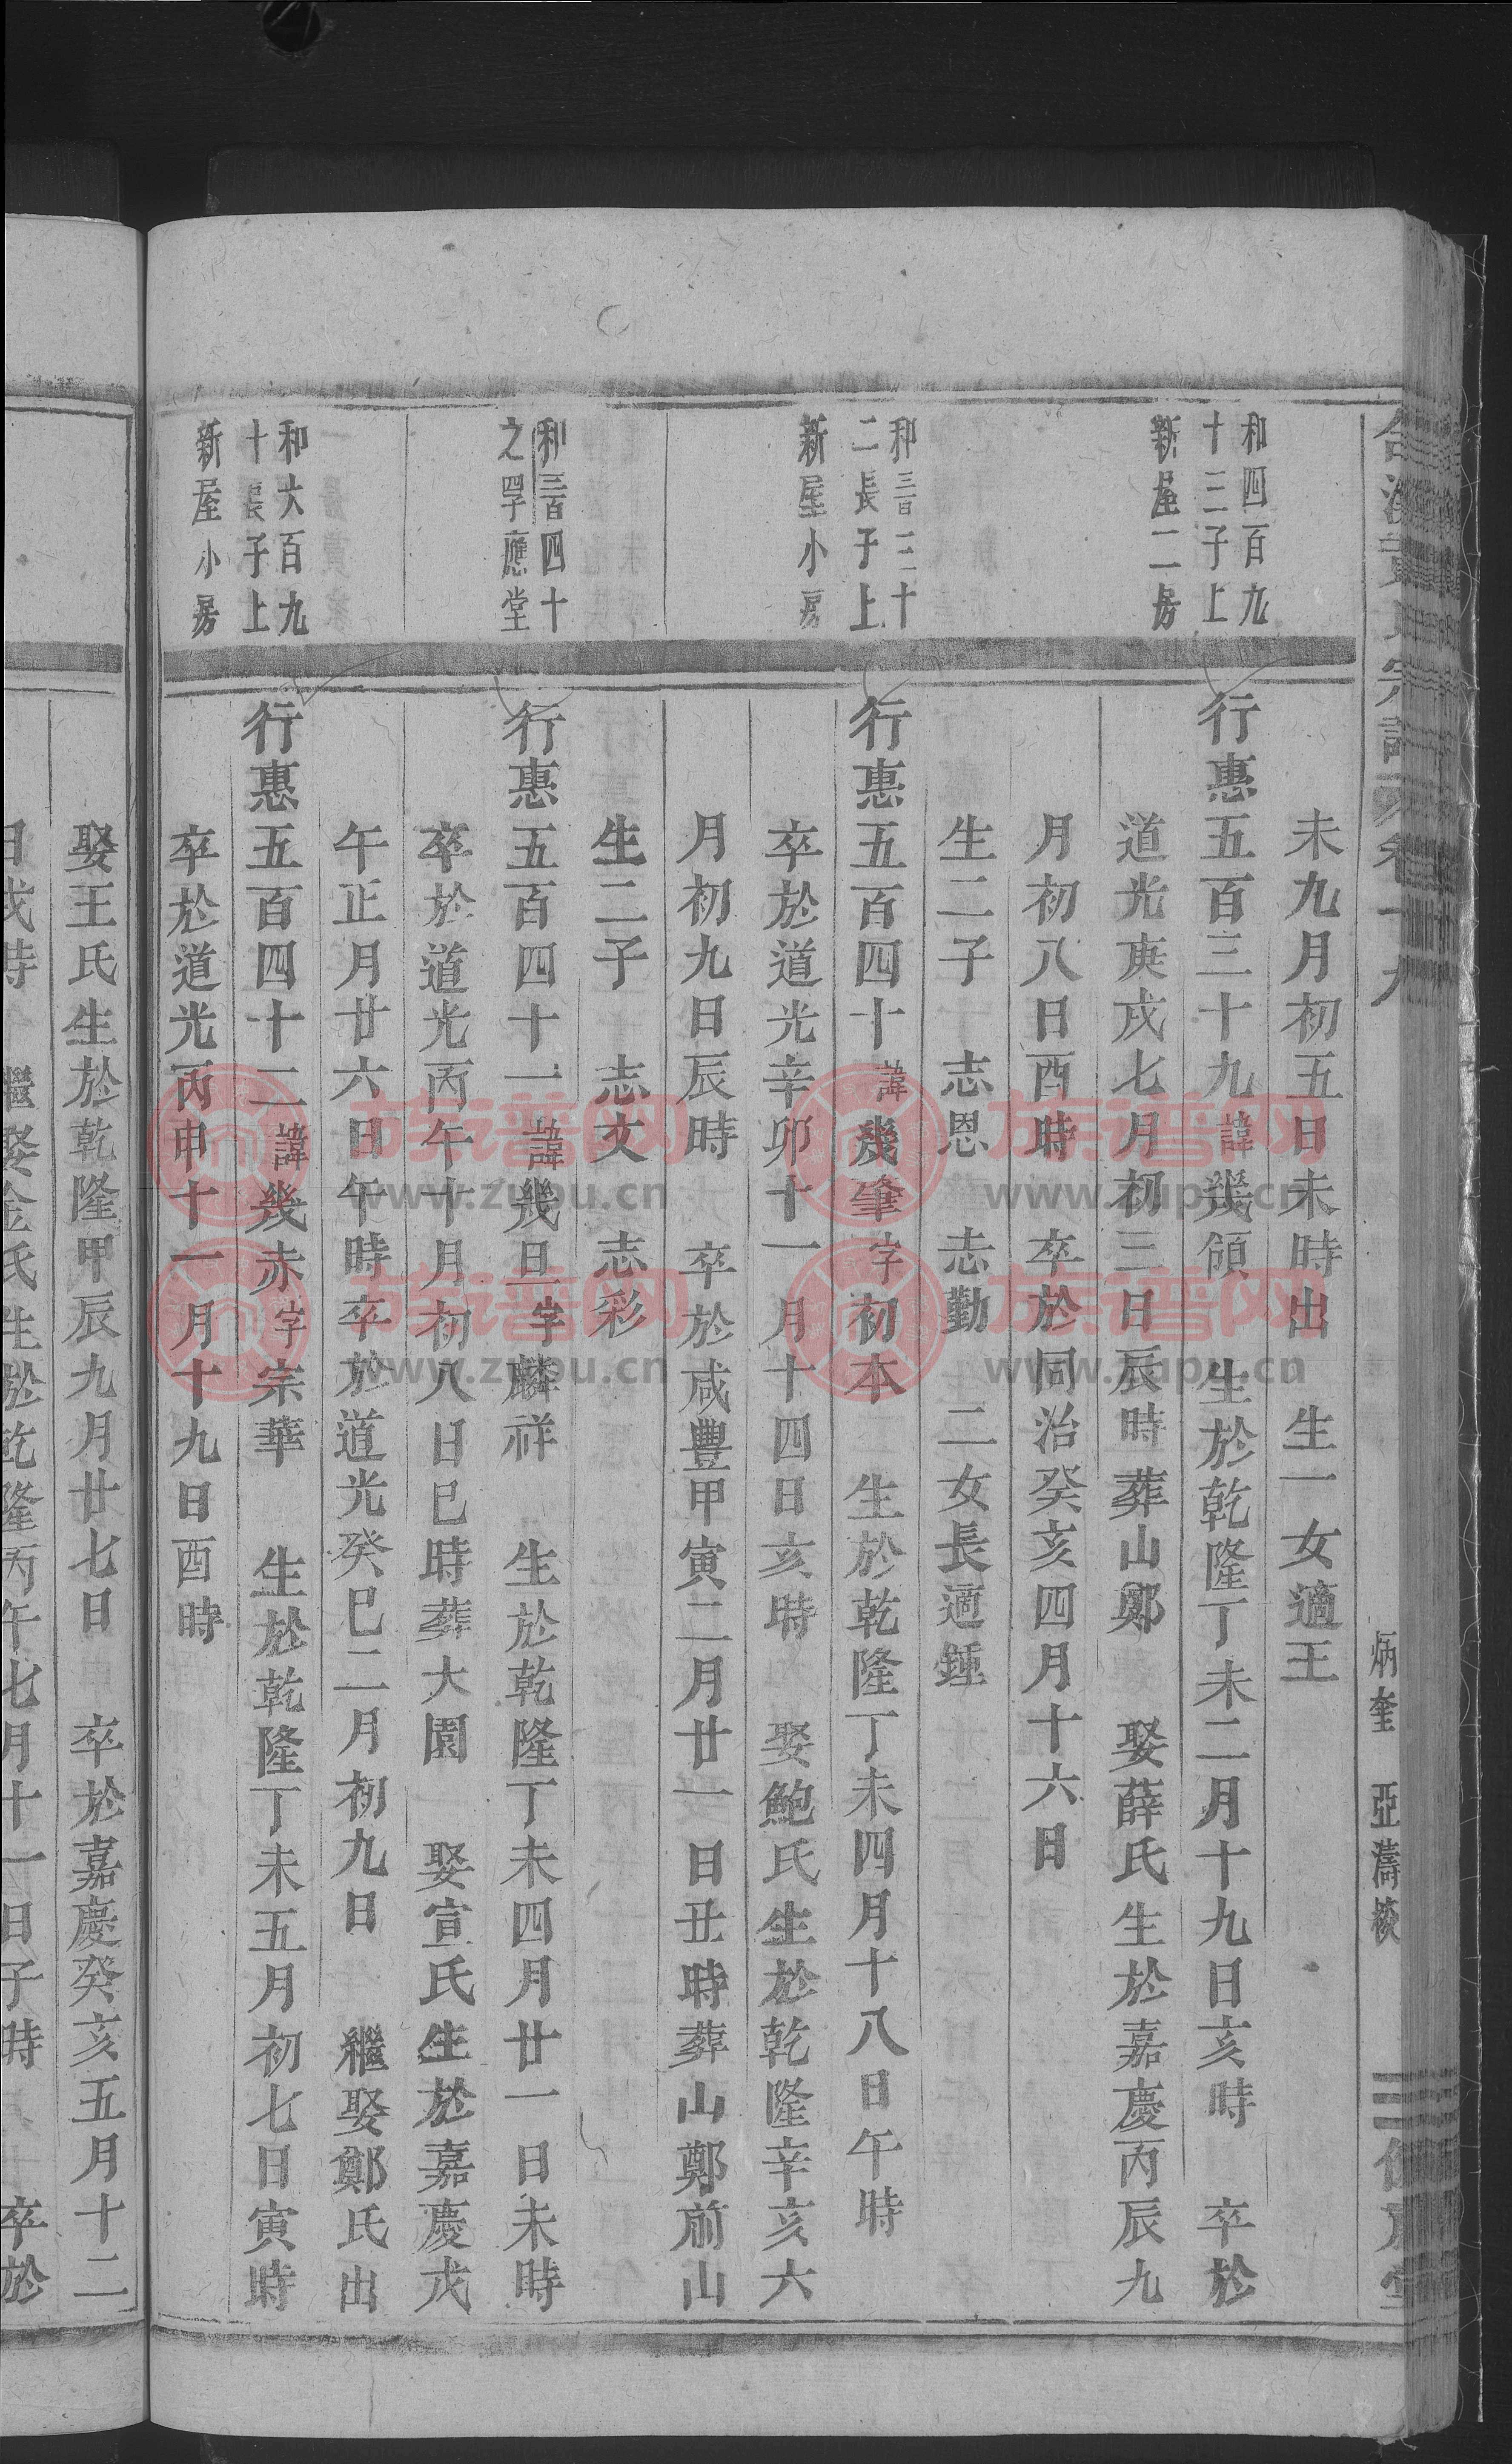 宗譜卷十九
炳奎 亞濤校
未九月初五日未時出 生一女適王
和四百九
十三子上
新屋二房
行惠五百三十九諱幾頎 生於乾隆丁未二月十九日亥時 卒於
道光庚戌七月初三日辰時葬山鄭 娶薛氏生於嘉慶丙辰九
月初八日酉時 卒於同治癸亥四月十六日
生二子 志恩 志勤 二女長適鍾
和三百三十
二長子上
新屋小房
行惠五百四十諱幾肇字初本 生於乾隆丁未四月十八日午時
卒於道光辛卯十一月十四日亥時 娶鮑氏生於乾隆辛亥六
月初九日辰時 卒於咸豐甲寅二月廿一日丑時葬山鄭前山
生二子 志文 志彩
和三百四十
之四子應堂
行惠五百四十一諱幾旦字麟祥 生於乾隆丁未四月廿一日未時
卒於道光丙午十月初八日巳時葬大園 娶宣氏生於嘉慶戊
午正月廿六日午時卒於道光癸巳二月初九日 繼娶鄭氏出
和大百九
十長子上
新屋小房
行惠五百四十二諱幾赤字宗華 生於乾隆丁未五月初七日寅時
卒於道光丙申十一月十九日酉時
娶王氏生於乾隆甲辰九月廿七日 卒於嘉慶癸亥五月十二
日戌時 繼娶金氏生於乾隆丙午七月十一日子時 卒於
族普网
www.zupu.cn
族普网
www.zupu.cn
族普网
www.zupu.cn
族普网
www.zupu.cn